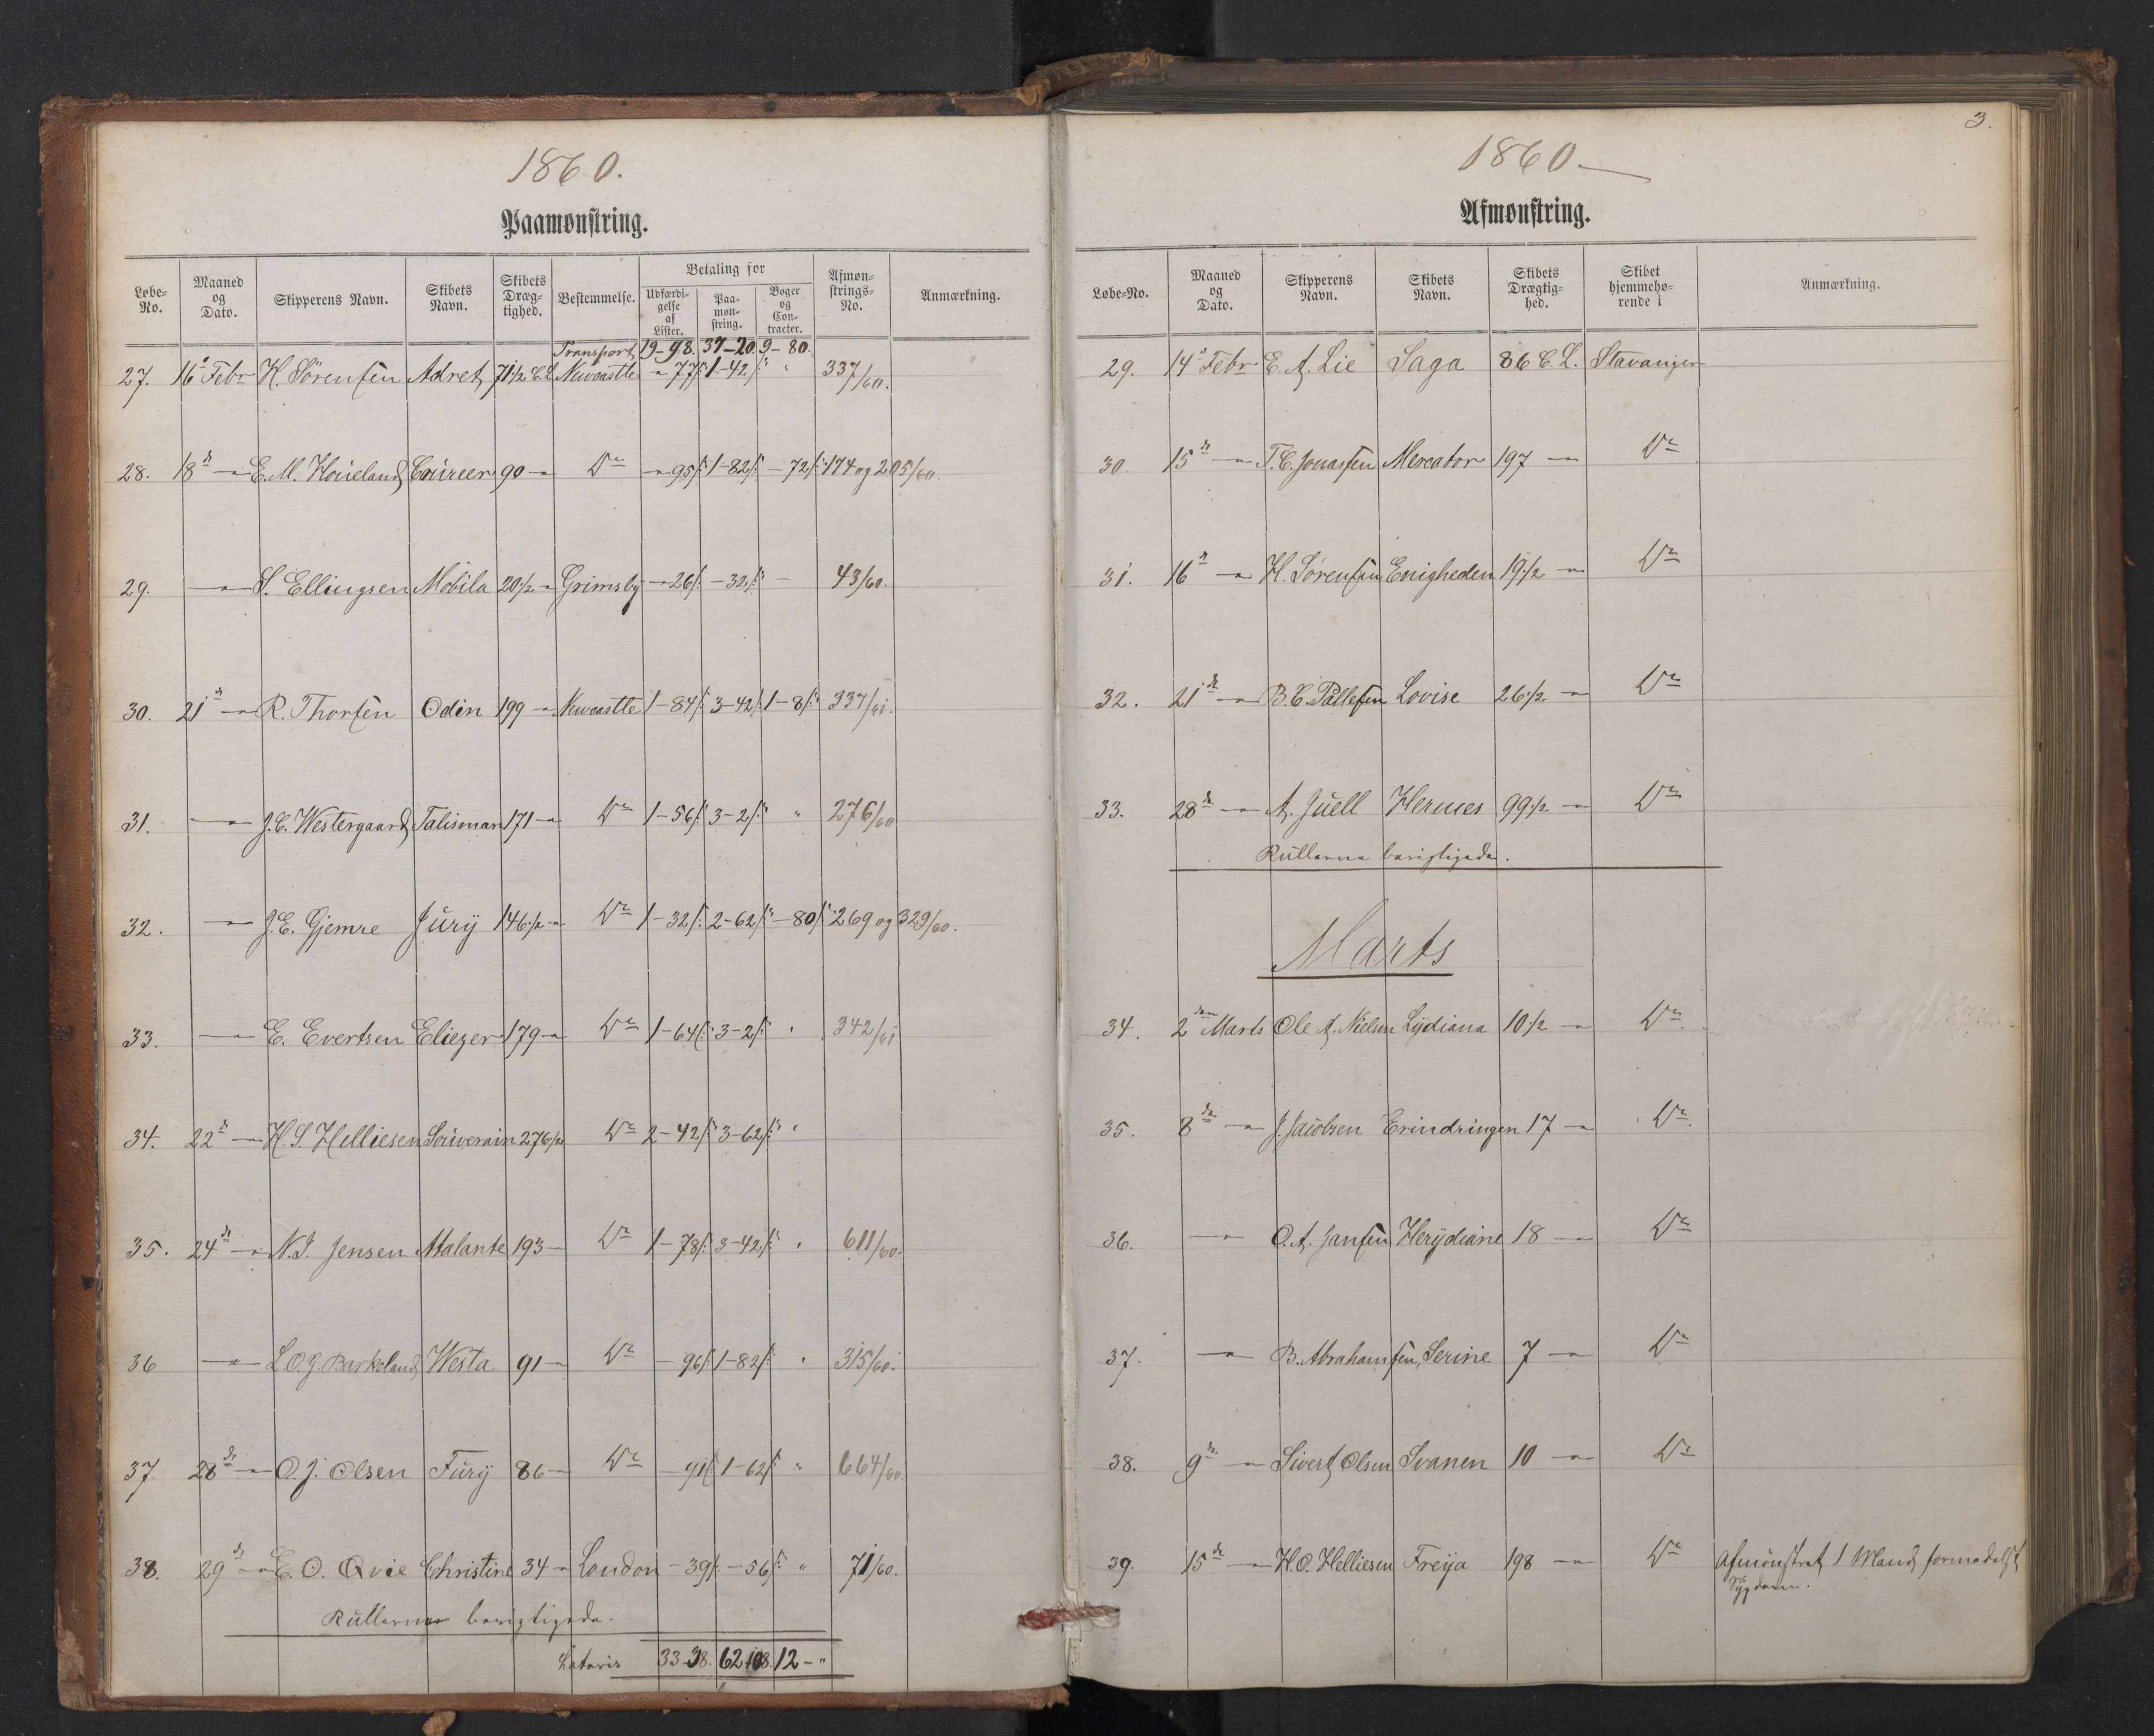 1860.
Paamønstring.
Løbe-No. Maaned og Dato. Skipperens Navn. Skibets Navn. Skibets Dræg-tighed. Bestemmelse. Betaling for Udfærdi-gelse af Lister. Paa-møn-string. Bøger og Con-tracter. Afmøn-strings-No. Anmærkning.
Transport 19-98. 37-20. 9-80.
27. 16 Febr H. Sørensen Adret 71 1/2 C.L. Newcastle " 77 1-42 " 337/60.
28. 18 " E. M. Houeland Coureer 90 " Do " 95 1-82 -72 174 og 205/60.
29. " S. Ellingsen Mobila 20 1/2 " Grimsby " 26 -32 - 43/60.
30. 21 " R. Thorsen Odin 199 " Newcastle 1-84 3-42 1-8 337/61.
31. " J.C. Westergaard Talisman 171 " Do 1-56 3-2 " 276/60
32. " J.E. Gjemre Jury 146 1/2 " Do 1-32 2-62 -80 269 og 329/60.
33. " E. Evertsen Eliezer 179 " Do 1-64 3-2 " 342/61
34. 22 " H. S. Helliesen Souverain 276 1/2 Do 2-42 3-62 "
35. 24 " N. J. Jensen Atalante 193 Do 1-78 3-42 " 611/60.
36 " L. O. G. Barkeland Westa 91 Do -96 1-82 " 315/60.
37. 28 " O. J. Olsen Fury 86 Do -91 1-62 " 664/60.
38. 29 " E. O. Qvie Christine 34 " London -39 -56 " 71/60.
Rullerne berigtigede.
Lateris 33-38. 62-108. 12-"
3.
1860
Afmønstring.
Løbe-No. Maaned og Dato. Skipperens Navn. Skibets Navn. Skibets Drægtig-hed. Skibet hjemmehø-rende i Anmærkning.
29. 14 Febr E. A. Lie Saga 86 C.L. Stavanger
30. 15 " T. C. Jonassen Mercator 197 " Do
31. 16 " H. Sørensen Enigheden 19 1/2 " Do
32. 21 " B. C. Pallesen Lovise 26 1/2 " Do
33. 28 " A. Juell Hermes 99 1/2 " Do
Rullerne berigtigede.
Marts
34. 2den Marts Ole A. Nielsen Lydiana 10 1/2 " Do
35. 8de " J. Jacobsen Erindringen 17 " Do
36. " O. A. Jansen Herydiane 18 " Do
37. " B. Abrahamsen Serine 7 " Do
38. 9de " Sivert Olsen Svanen 10 " Do
39. 15de " H. O. Helliesen Freya 198 " Do Afmønstret 1 Mand formedelst
Sygdom.